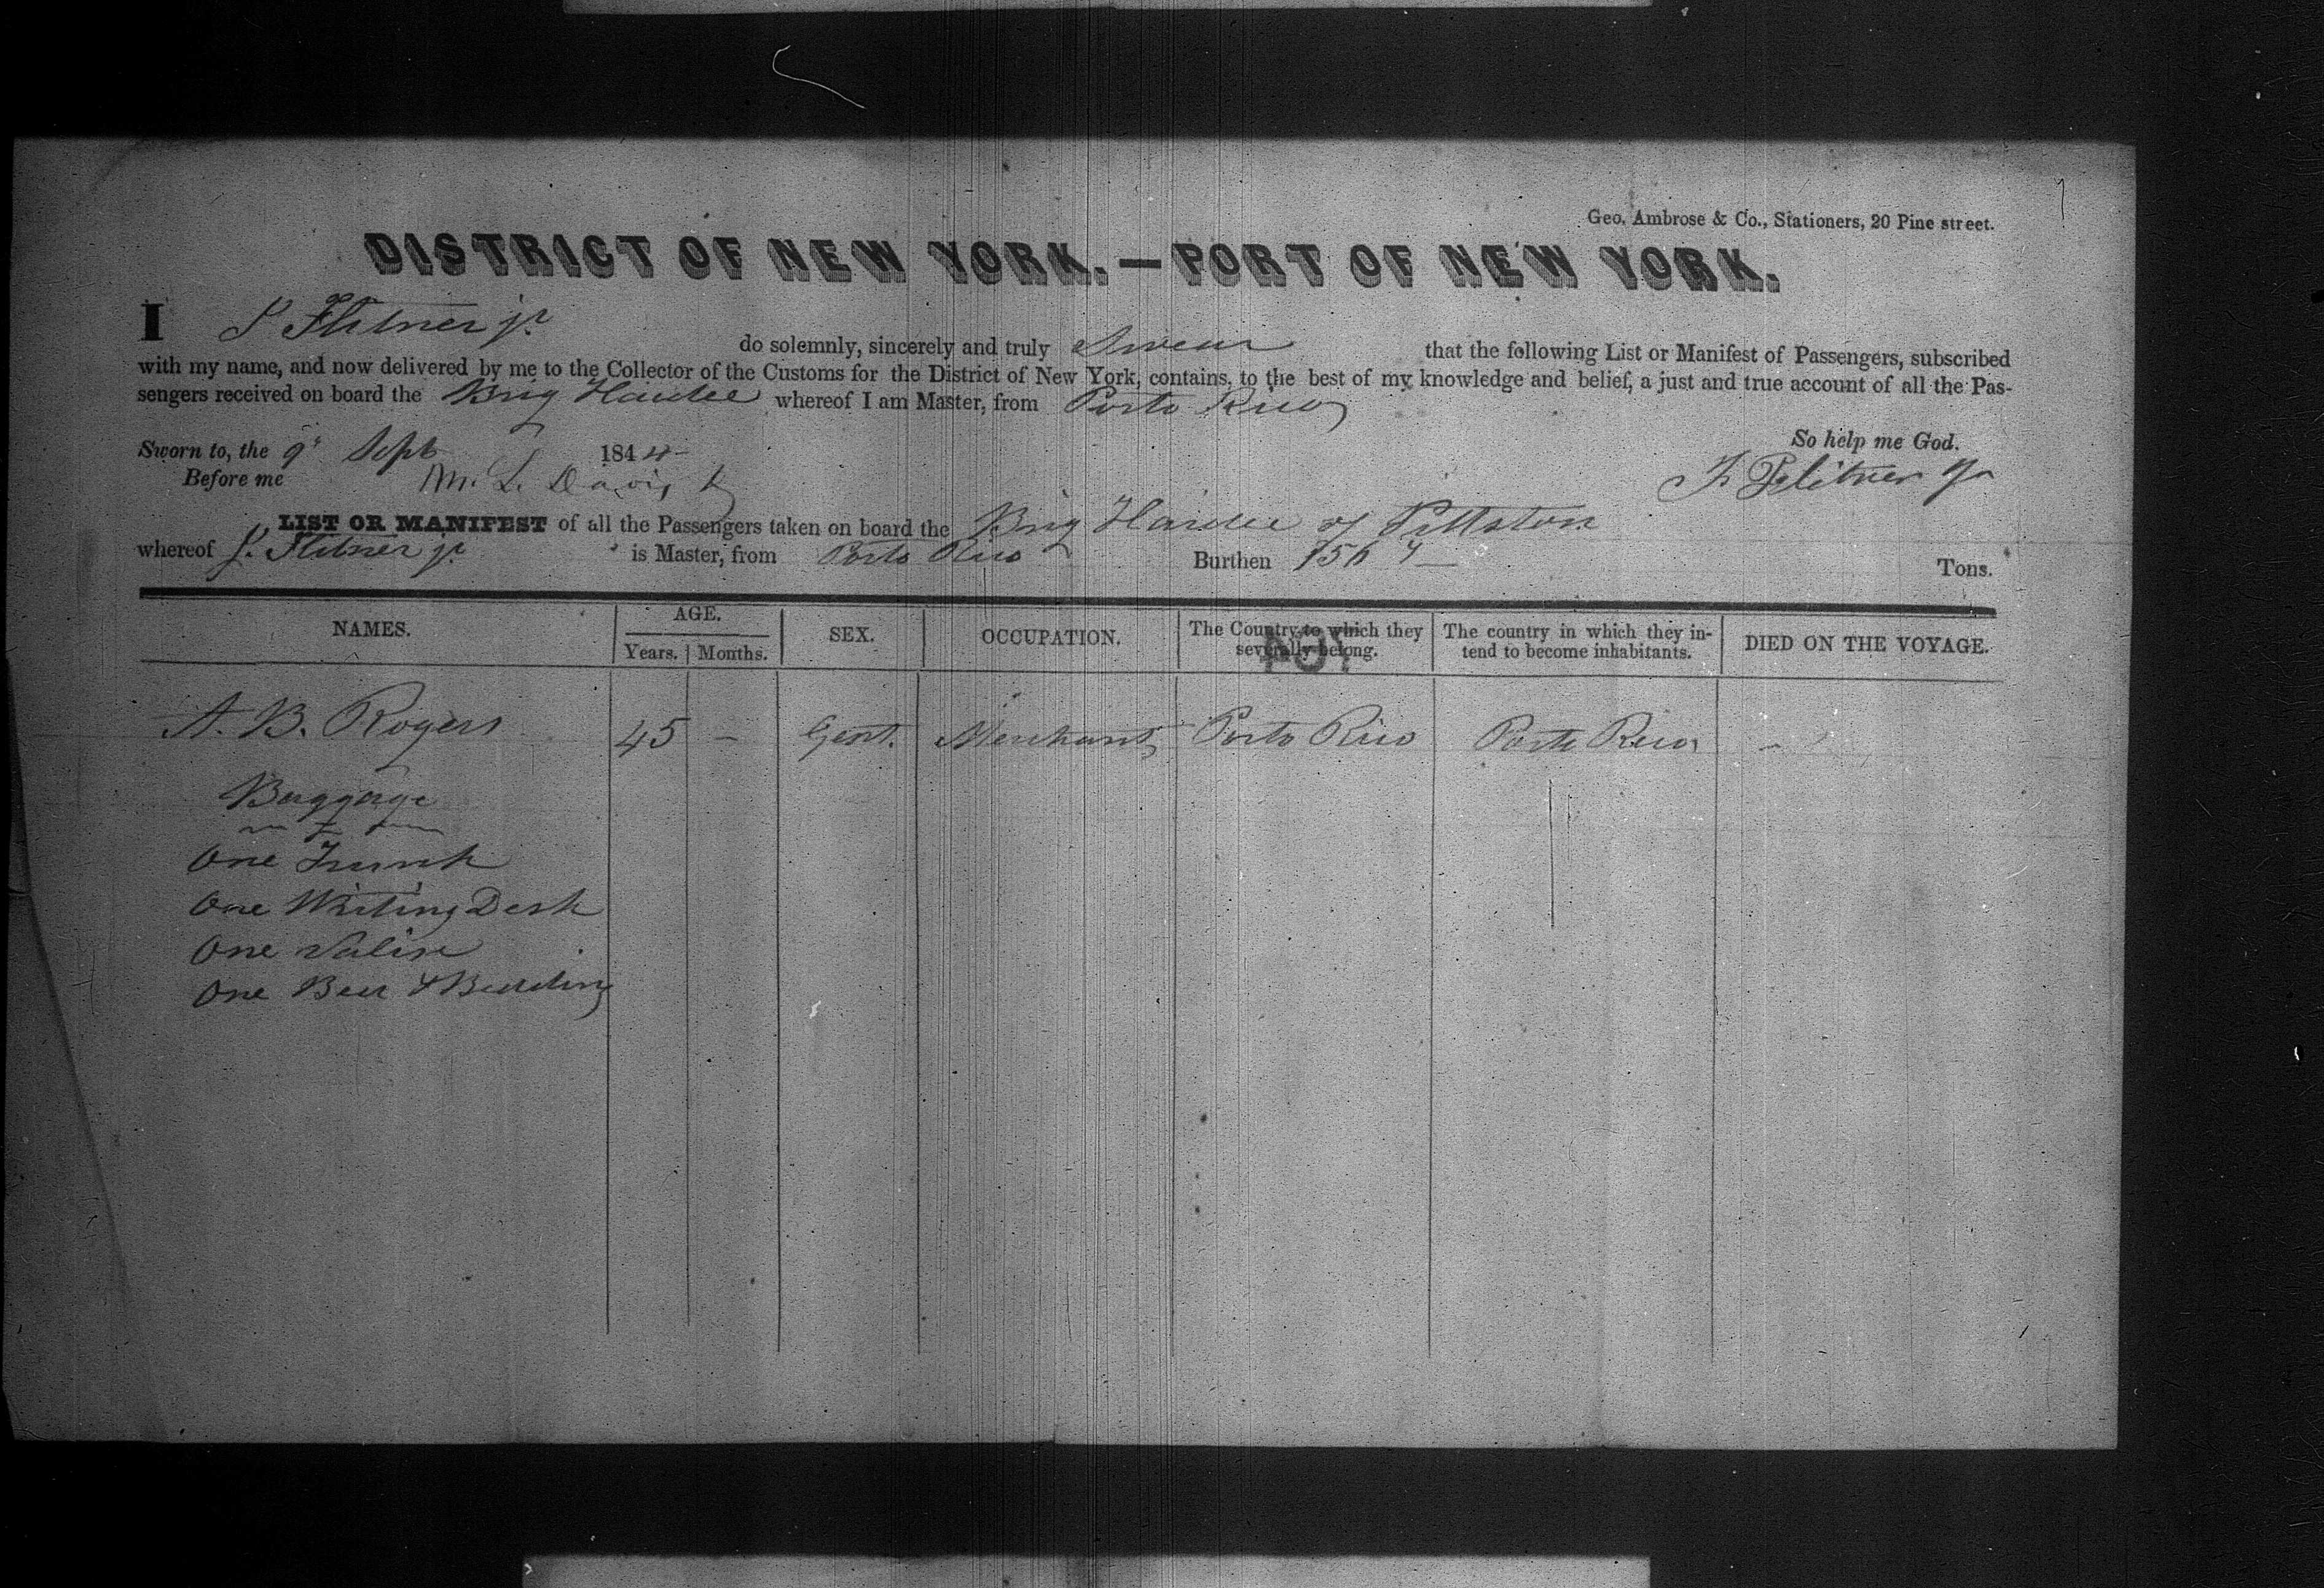 Geo. Ambrose & Co., Stationers, 20 Pine street.
DISTRICT OF NEW YORK.—PORT OF NEW YORK.
I Flitner jr.
do solemnly, sincerely and truly Swear that the following List or Manifest of Passengers, subscribed
with my name, and now delivered by me to the Collector of the Customs for the District of New York, contains, to the best of my knowledge and belief, a just and true account of all the Pas-
sengers received on board the Brig whereof I am Master, from Porto Rico
So help me God.
Sworn to, the 9th Sept 1844
Flitner Jr
Before me M. L. Davis
LIST OR MANIFEST of all the Passengers taken on board the Brig of Pittston
whereof Flitner jr. is Master, from Porto Rico Burthen Tons.
NAMES. AGE. SEX. OCCUPATION. The Country to which they severally belong. The country in which they in- tend to become inhabitants. DIED ON THE VOYAGE.
Years. Months.
A. B. Rogers 45 – Gent. Merchant Porto Rico Porto Rico –
Baggage
One Trunk
One Writing Desk
One Valise
One Bed & Bedding